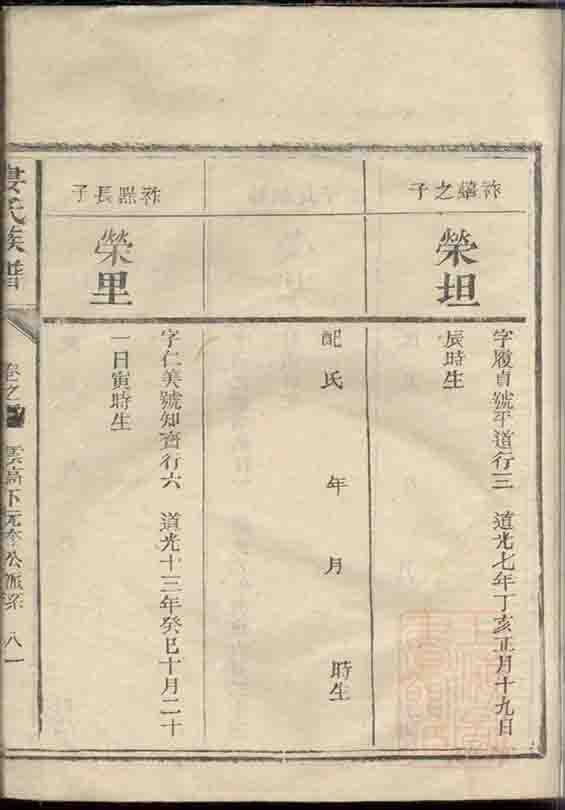 祚繥之子
榮坦
字履貞號平道行三　道光七年丁亥正月十九日
辰時生
配氏　年　月　時生
祚熙長子
榮里
字仁美號知齋行六　道光十三年癸巳十月二十
一日寅時生
婁氏族譜
卷之
下元
公派系
八一